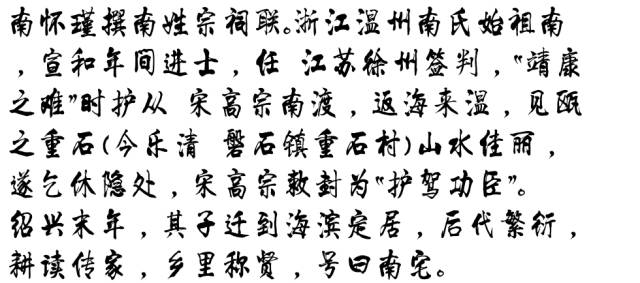 南怀瑾撰南姓宗祠联。浙江温州南氏始祖南
，宣和年间进士，任 江苏徐州签判，“靖康
之难”时护从 宋高宗南渡，返海来温，见瓯
之重石(今乐清 磐石镇重石村)山水佳丽，
遂乞休隐处，宋高宗敕封为“护驾功臣”。
绍兴末年，其子迁到海滨定居，后代繁衍，
耕读传家，乡里称贤，号曰南宅。